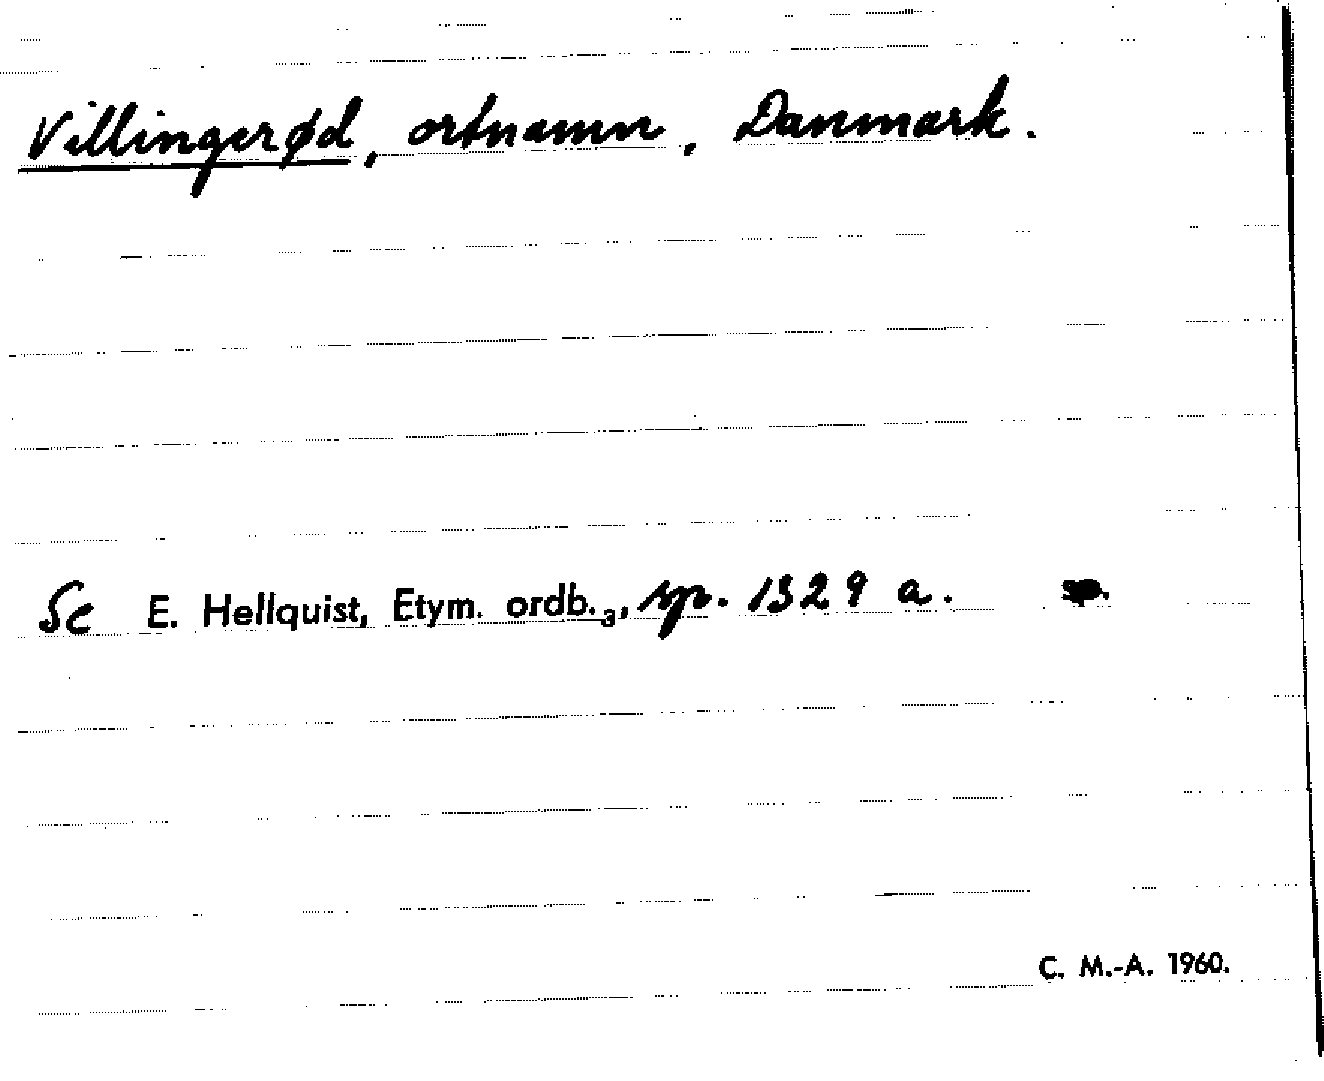 Villingerød, ortnamn, Danmark.
Se E. Hellquist, Etym. ordb.₃, sp. 1329 a.
C. M.-A. 1960.